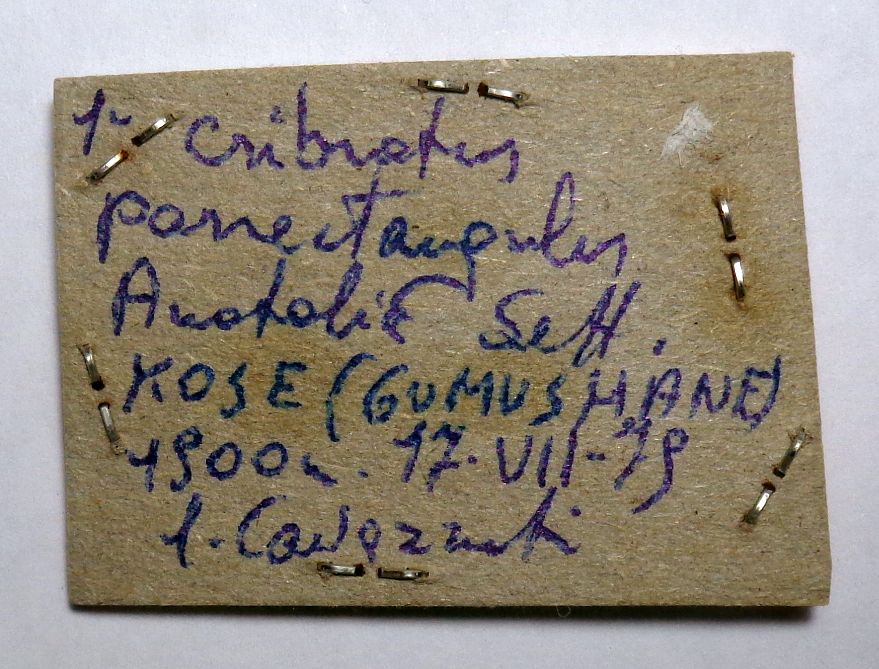 1~ cribratus
porrectangulus
Anatolie Sett.
KOSE (GUMUSHANE)
1900m. 17-VII-79
l. Cavazzuti